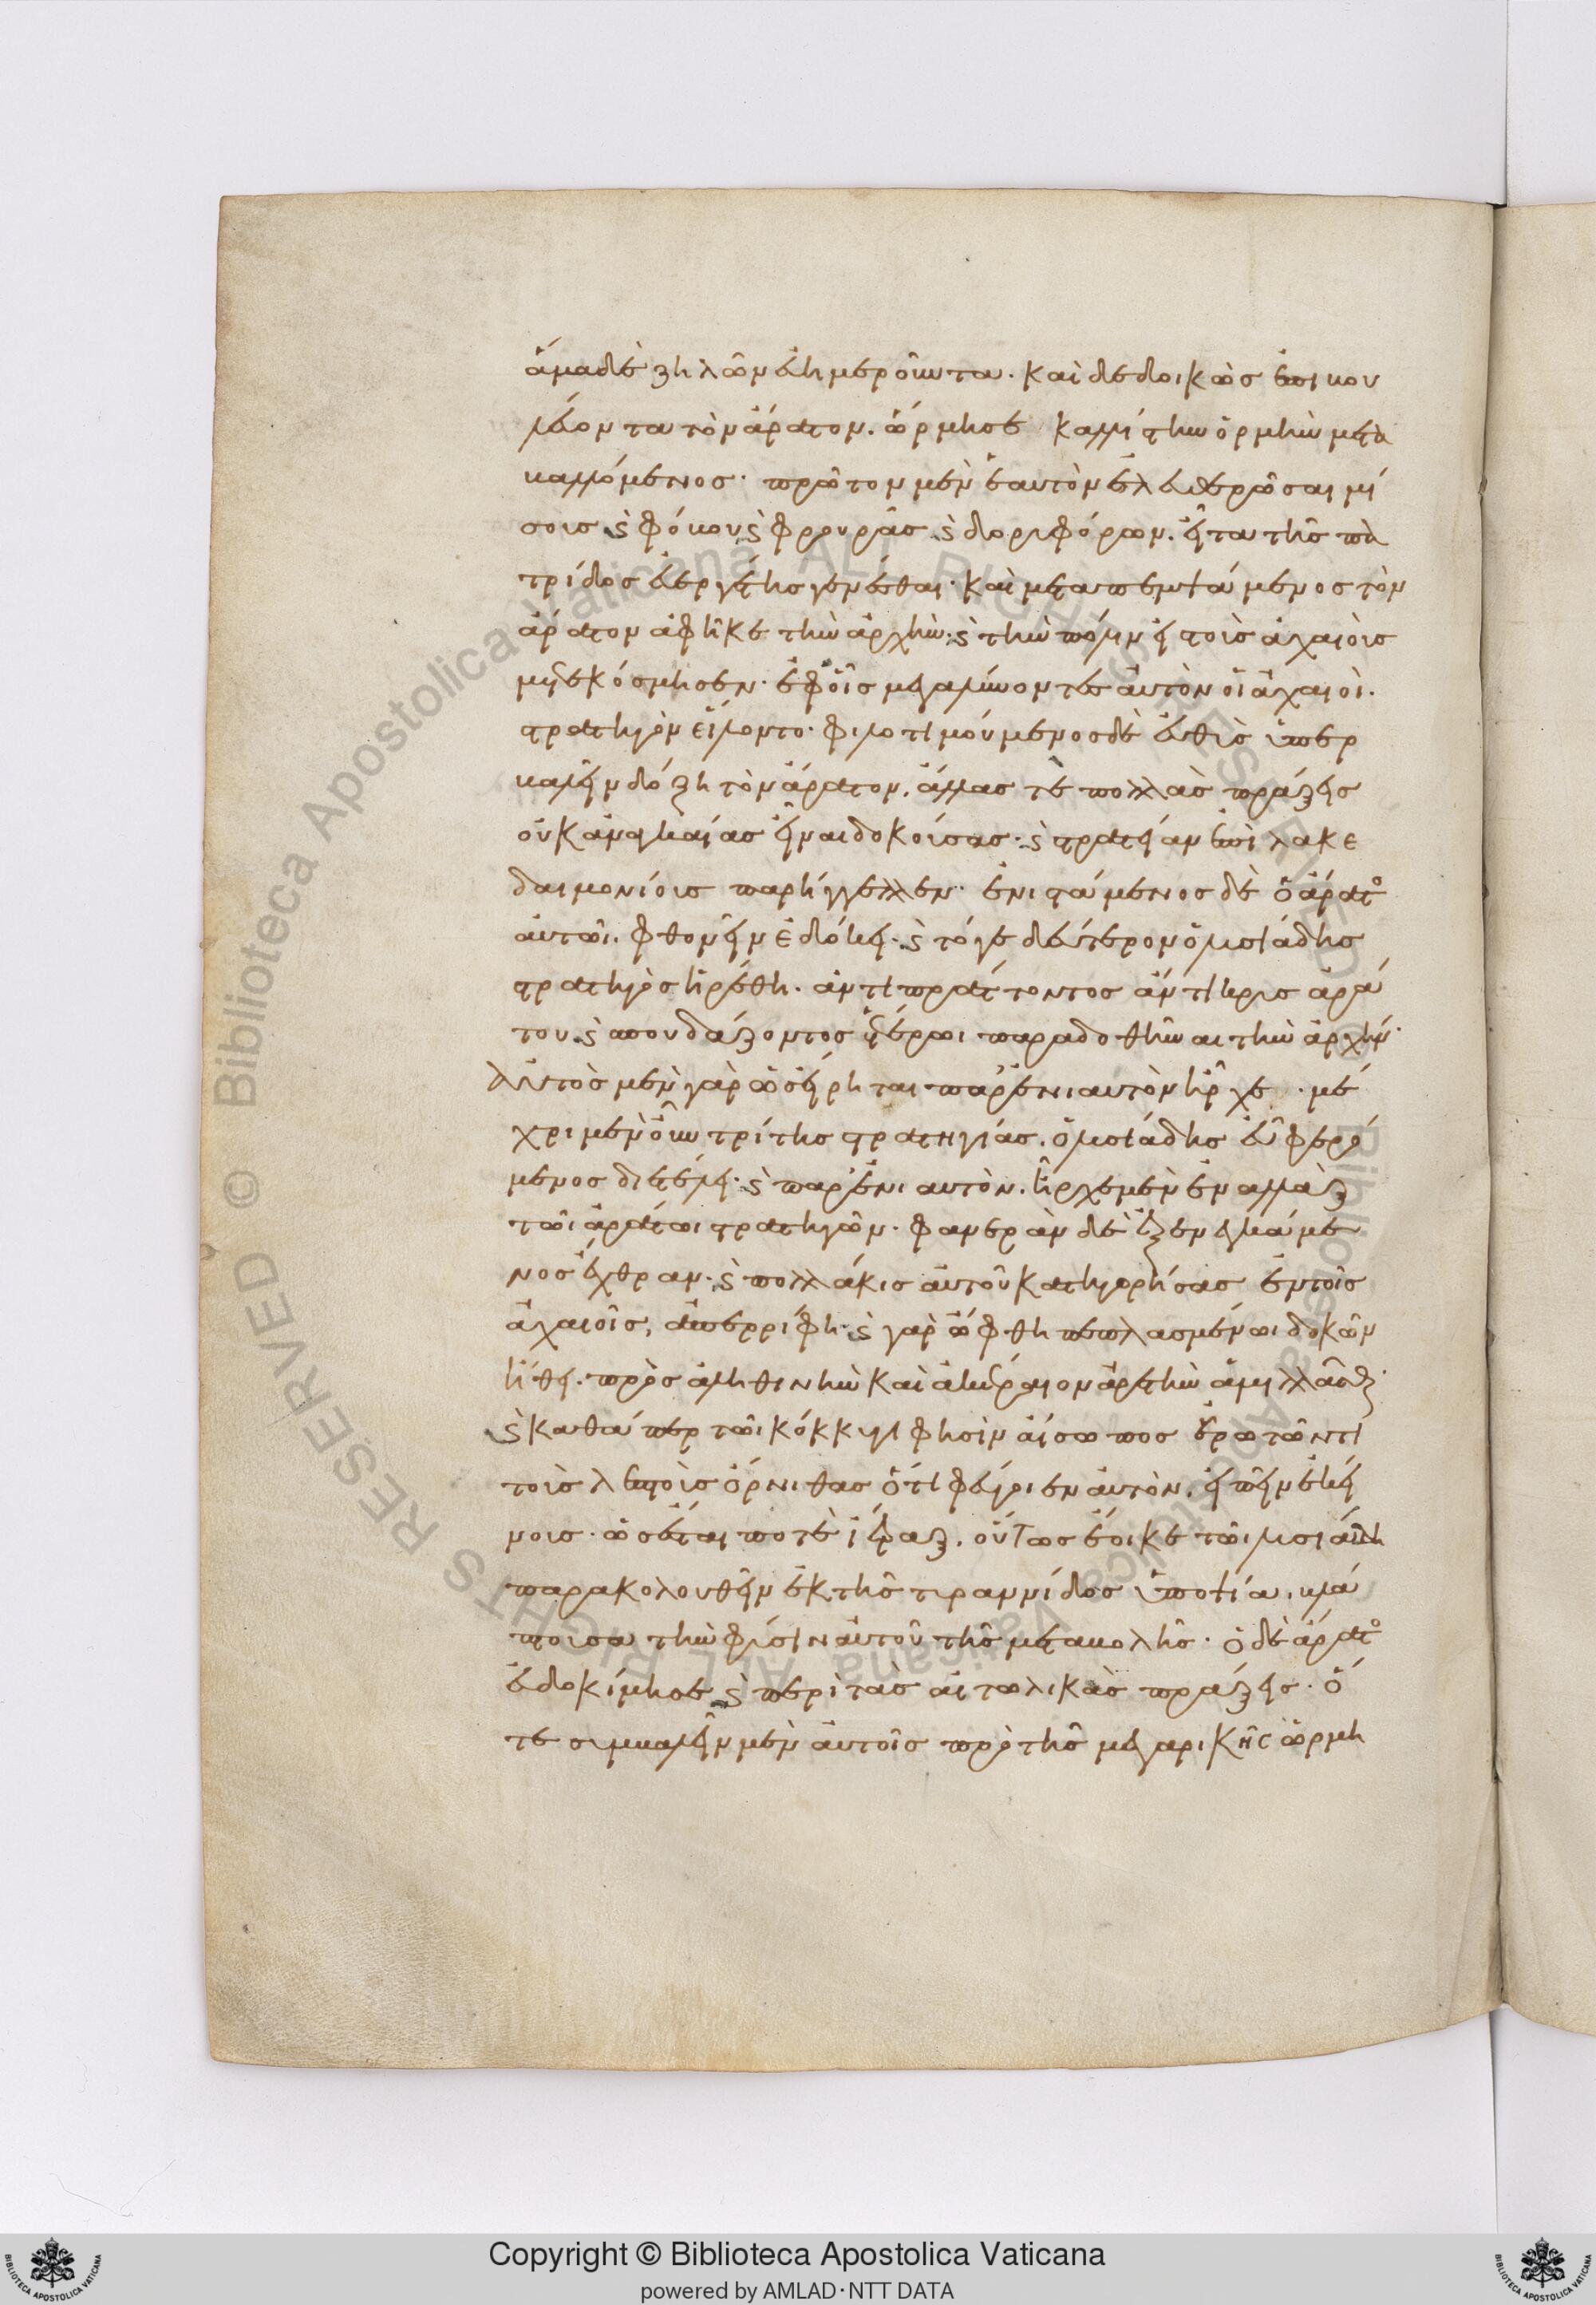 ἅμα δὲ ζηλῶν εὐημεροῦντα. καὶ δεδοικὼς ἐπιβου
λεύοντα τὸν ἄρατον. ὥρμησε καλλίστην ὁρμὴν μετα
βαλλόμενος· πρῶτον μὲν ἑαυτὸν ἐλευθερῶσαι μί
σους ϗ φόβου ϗ φρουρᾶς ϗ δορυφόρων. εἶτα τῆς πα
τρίδος εὐεργέτης γενέσθαι· καὶ μεταπεμψάμενος τὸν
ἄρατον ἀφῆκε τὴν ἀρχήν· ϗ τὴν πόλιν εἰς τοὺς ἀχαιοὺς
μετεκόμησεν· ἐφ' οἷς μεγαλύνοντες αὐτὸν οἱ ἀχαιοὶ.
στρατηγὸν εἵλοντο· φιλοτιμούμενος δὲ εὐθὺς ὑπερ
βαλεῖν δόξη τὸν ἄρατον. ἄλλας τὲ πολλὰς πράξεις
οὐκ ἀναγκαίας εἶναι δοκούσας· ϗ στρατείαν ἐπὶ λακε
δαιμονίους παρήγγελλεν· ἐνιστάμενος δὲ ὁ ἄρατος
αὐτῶι. φθονεῖν ἐδόκει· ϗ τό γε δεύτερον ὁ λυσιάδης
στρατηγὸς ἡρέθη. ἀντιπράττοντος ἄντικρυς ἀρά
του ϗ σπουδάζοντος ἑτέρωι παραδοθῆναι τὴν ἀρχήν·
αὐτὸς μὲν γὰρ ὡς εἴρηται παρ' ἐνιαυτὸν ἦρχε · μέ
χρι μὲν οὖν τρίτης στρατηγίας. ὁ λυσιάδης εὖ φερό
μενος διετέλει· ϗ παρ' ἐνιαυτὸν. ἦρχε μὲν ἐναλλὰξ
τῶι ἀράτωι στρατηγῶν· φανερὰν δὲ ἐξενεγκάμε
νος ἔχθραν· ϗ πολλάκις αὐτοῦ κατηγορήσας ἐν τοῖς
ἀχαιοῖς, ἀπερρίφη· ϗ γὰρ ὤφθη πεπλασμένωι δοκῶν
ἤθει· πρὸς ἀληθινὴν καὶ ἀκέραιον ἀρετὴν ἁμιλλᾶσθαι·
ϗ καθάπερ τῶι κόκκυγι φησὶν αἴσωπος ἐρωτῶντι
τοὺς λεπτοὺς ὄρνιθας ὅτι φεύγοιεν αὐτὸν. εἰπεῖν ἐκεί
νους· ὡς ἔσται ποτὲ ἱέραξ. οὕτως ἔοικε τῶι λυσιάδη
παρακολουθεῖν ἐκ τῆς τυραννίδος ὑποψία. βλά
πτουσα τὴν φύσιν αὐτοῦ τῆς μεταβολῆς· ὁ δὲ ἄρατος
εὐδοκίμησε ϗ περὶ τὰς αἰτωλικὰς πράξεις· ὅ
τε συμβαλεῖν μὲν αὐτοῖς πρὸ τῆς μεγαρικῆς ὡρμη